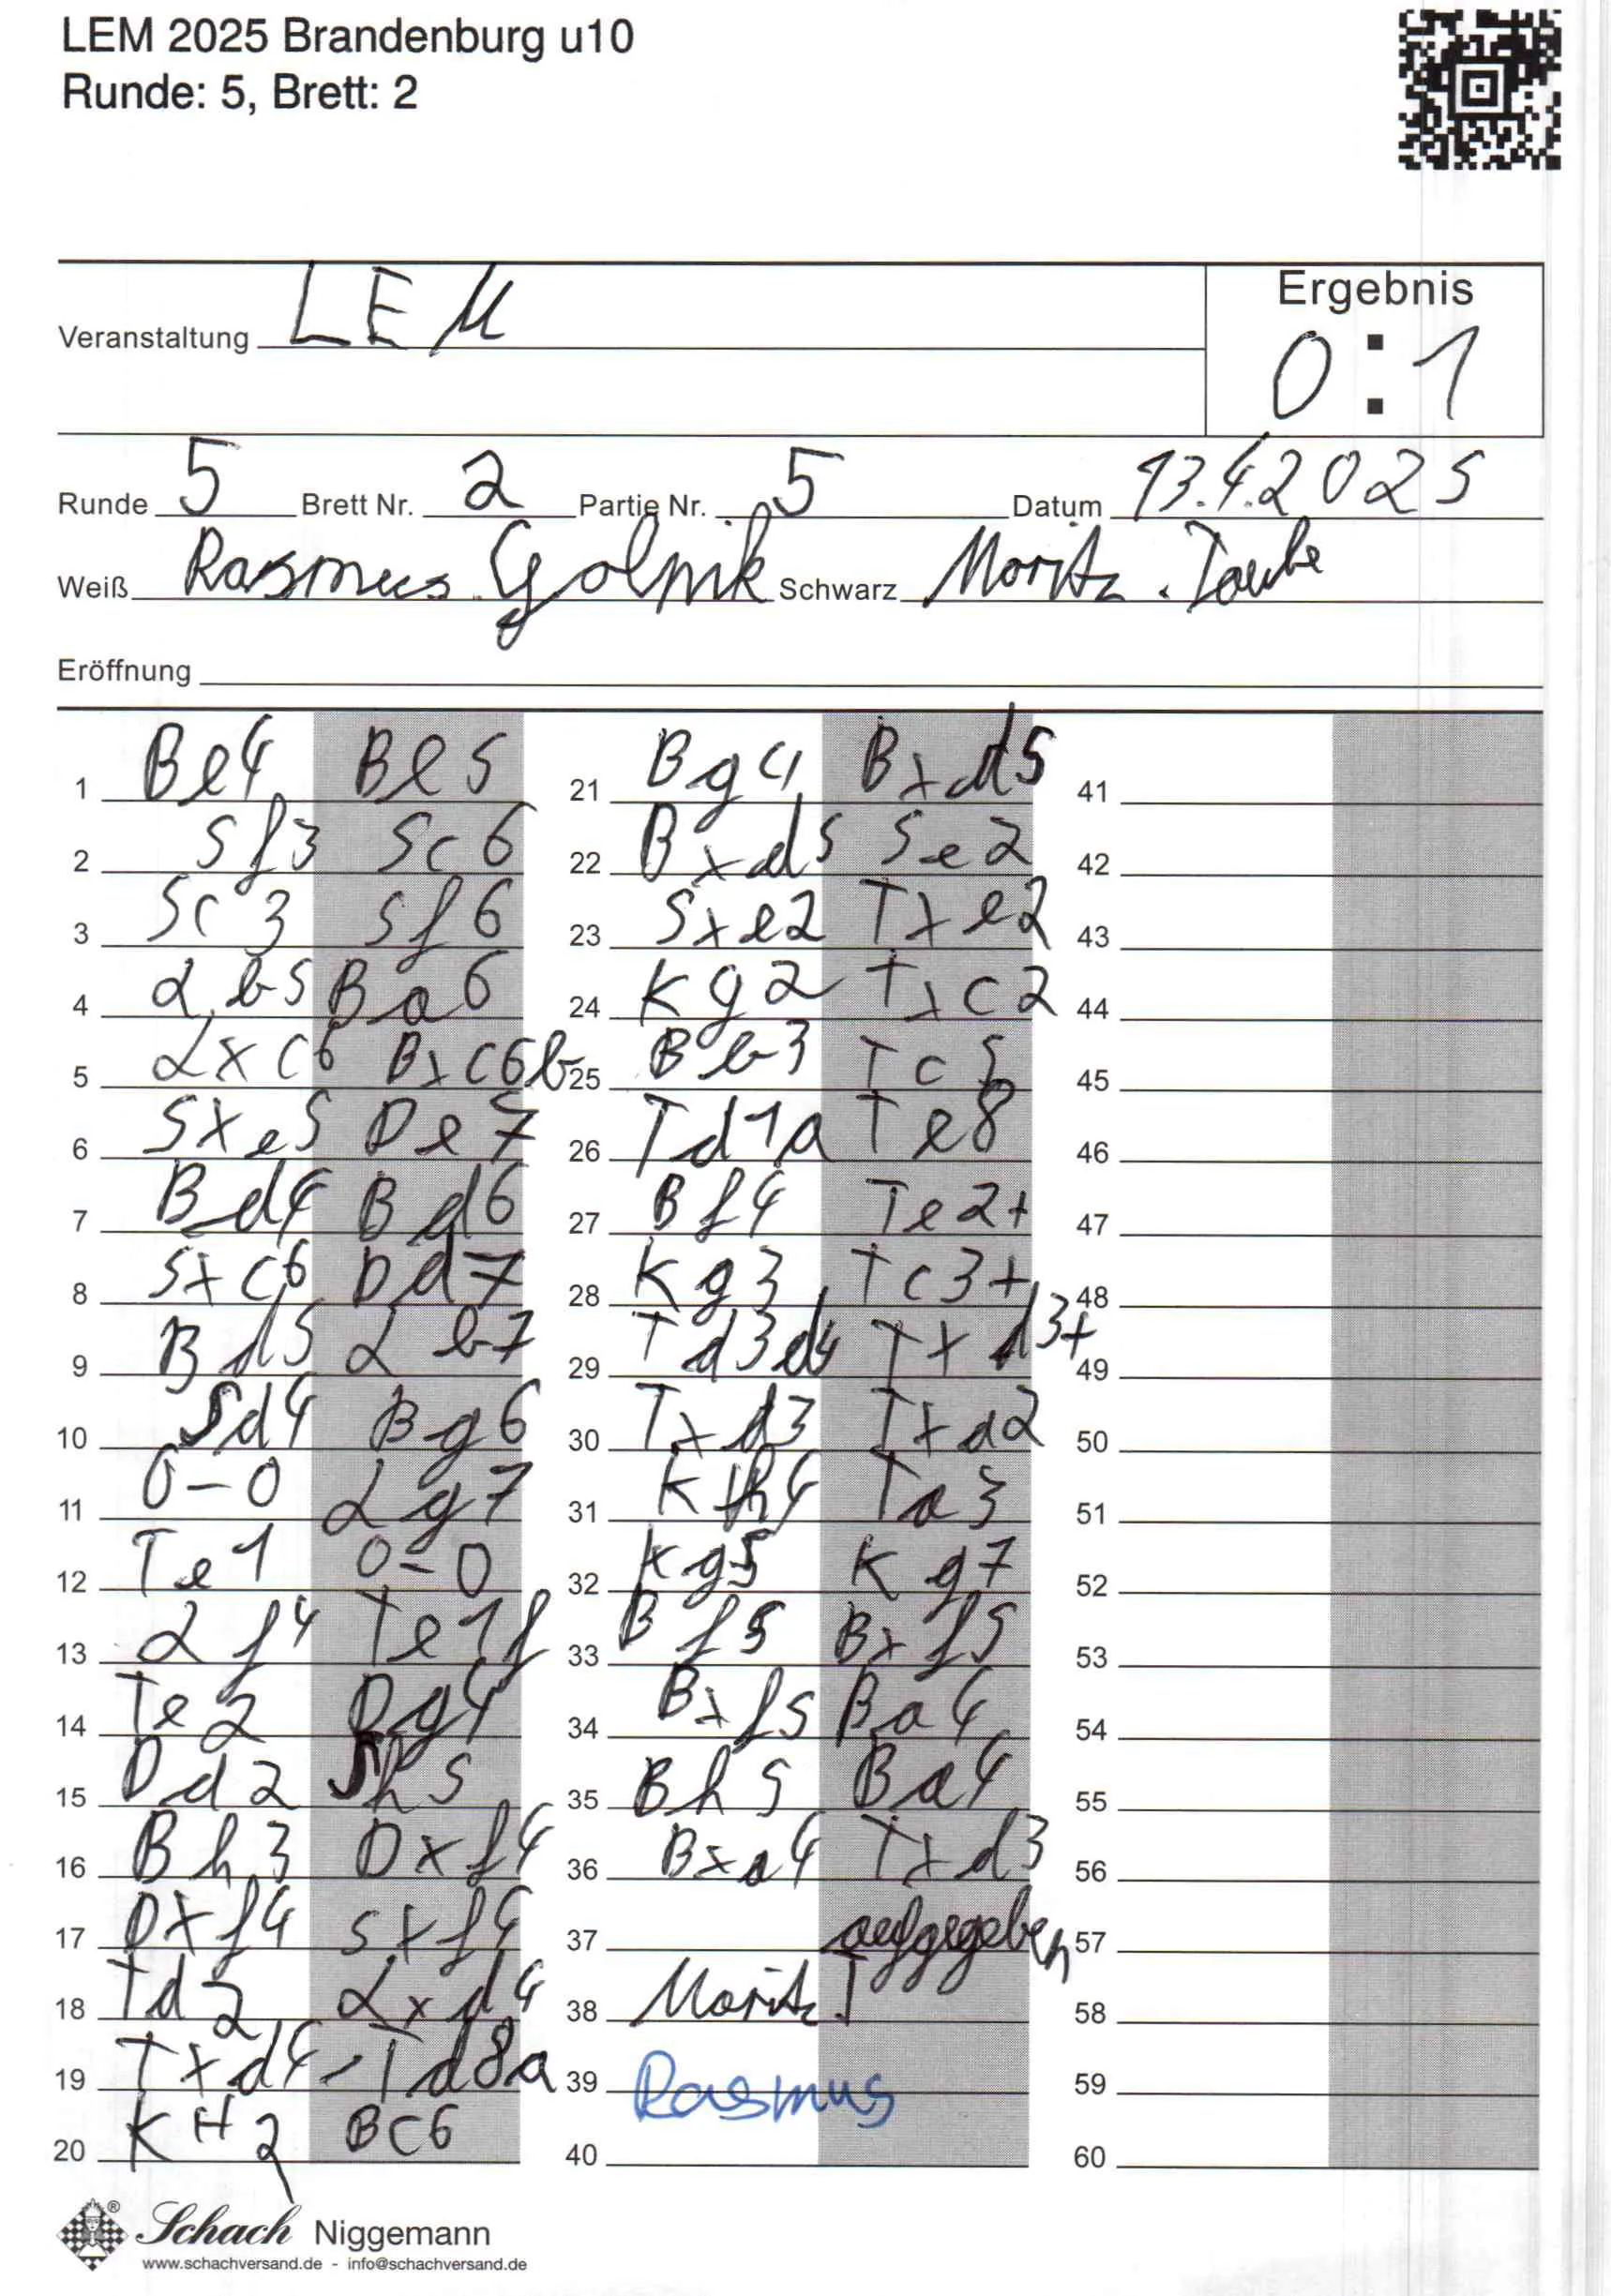 LEM 2025 Brandenburg u10
Runde: 5, Brett: 2
Veranstaltung LEM
Ergebnis
0:1
Runde 5 Brett Nr. 2 Partie Nr. 5 Datum 13.4.2025
Weiß Rasmus Golnik Schwarz Moritz Taube
Eröffnung
1 Be4 Be5
2 Sf3 Sc6
3 Sc3 Sf6
4 Lb5 Ba6
5 Lxc6 Bxc6b
6 Sxe5 De7
7 Bd4 Bd6
8 Sxc6 Dd7
9 Bd5 Lb7
10 Sd4 Bg6
11 0-0 Lg7
12 Te1 0-0
13 Lf4 Te1f
14 Te2 Dg4
15 Dd2 Sh5
16 Bh3 Dxf4
17 Dxf4 Sxf4
18 Td2 Lxd4
19 Txd4 - Td8a
20 KH2 BC6
21 Bg4 Bxd5
22 Bxd5 Se2
23 Sxe2 Txe2
24 Kg2 Txc2
25 Bb3 Tc5
26 Td1a Te8
27 Bf4 Te2+
28 Kg3 Tc3+
29 Td3d4 Txd3+
30 Txd3 Txa2
31 Kh4 Ta3
32 Kg5 Kg7
33 Bf5 Bxf5
34 Bxf5 Ba4
35 Bh5 Ba4
36 Bxa4 Txd3
37 aufgegeben
38 Moritz T
39 Rasmus
40
41
42
43
44
45
46
47
48
49
50
51
52
53
54
55
56
57
58
59
60
® Schach Niggemann
www.schachversand.de - info@schachversand.de